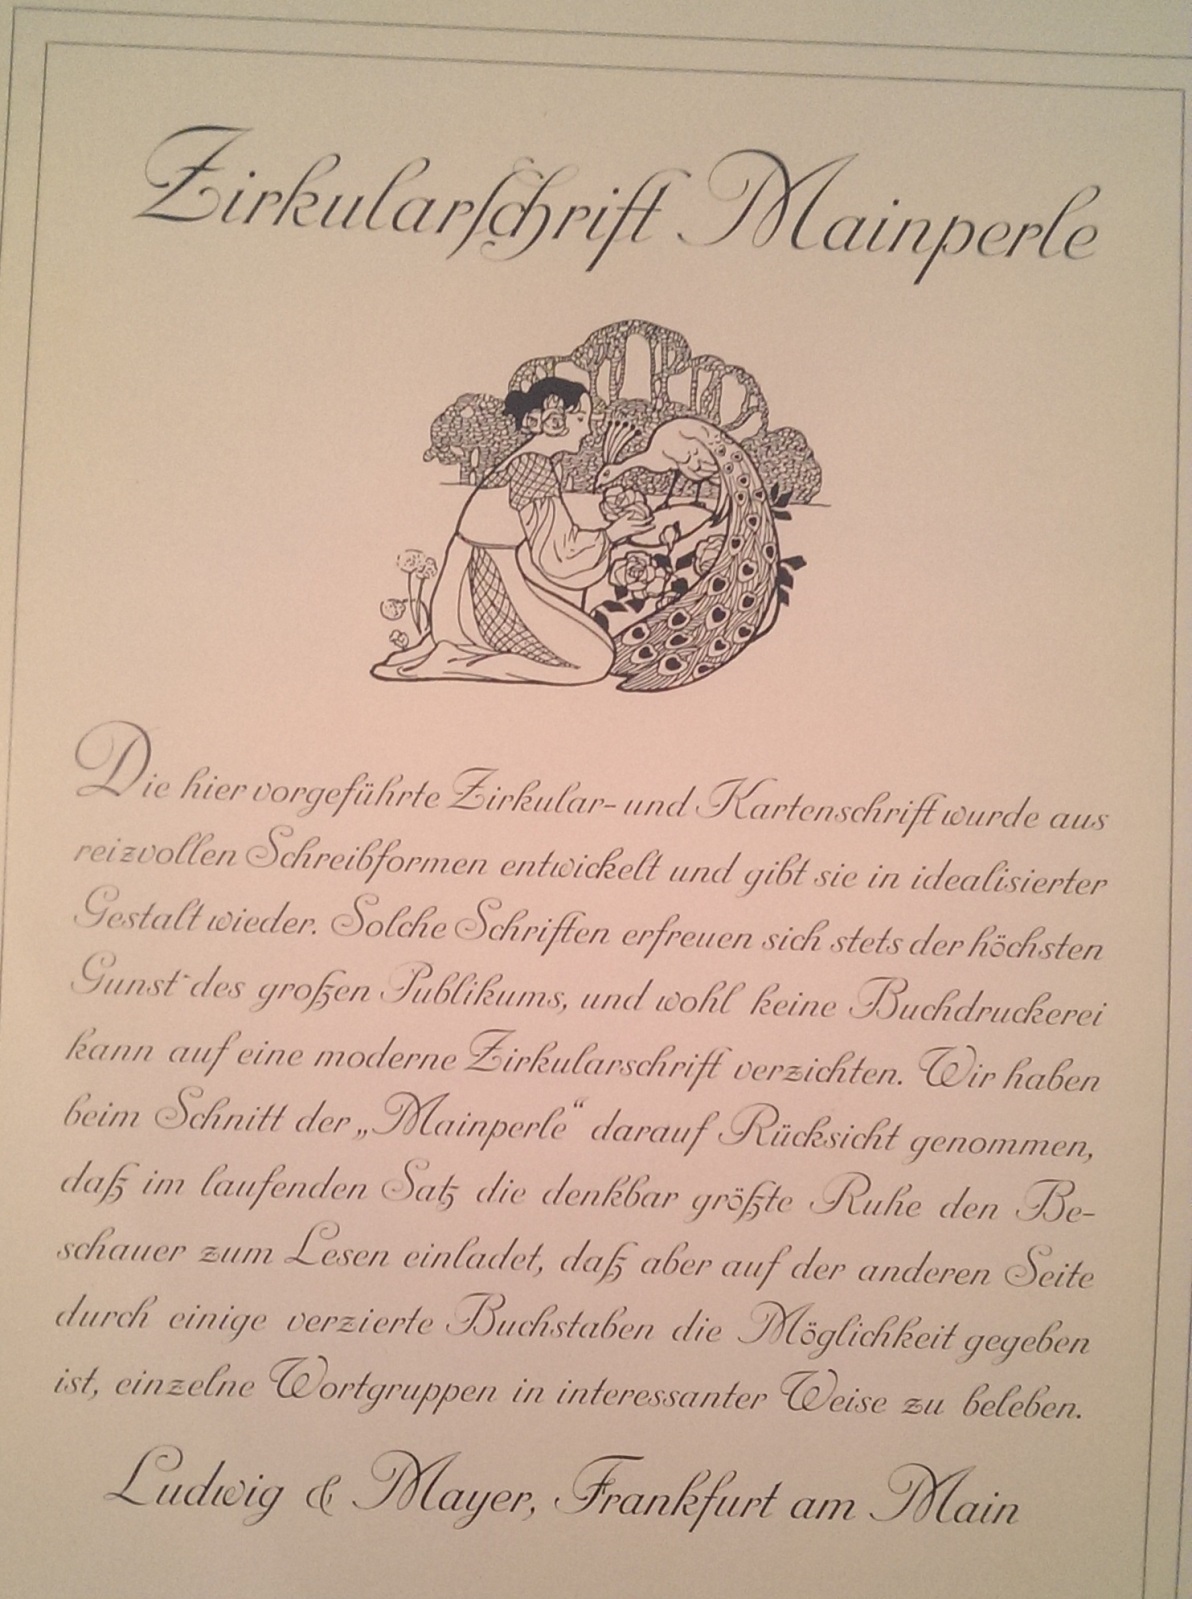 Zirkularschrift Mainperle
Die hier vorgeführte Zirkular- und Kartenschrift wurde aus
reizvollen Schreibformen entwickelt und gibt sie in idealisierter
Gestalt wieder. Solche Schriften erfreuen sich stets der höchsten
Gunst des großen Publikums, und wohl keine Buchdruckerei
kann auf eine moderne Zirkularschrift verzichten. Wir haben
beim Schnitt der „Mainperle“ darauf Rücksicht genommen,
daß im laufenden Satz die denkbar größte Ruhe den Be-
schauer zum Lesen einladet, daß aber auf der anderen Seite
durch einige verzierte Buchstaben die Möglichkeit gegeben
ist, einzelne Wortgruppen in interessanter Weise zu beleben.
Ludwig & Mayer, Frankfurt am Main